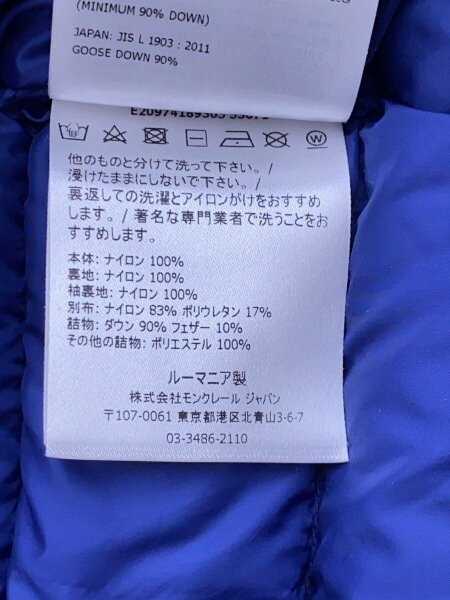 (MINIMUM 90% DOWN)
JAPAN: JIS L 1903 : 2011
GOOSE DOWN 90%
他のものと分けて洗って下さい。/
浸けたままにしないで下さい。/
裏返しての洗濯とアイロンがけをおすすめ
します。/ 著名な専門業者で洗うことをお
すすめします。
本体: ナイロン 100%
裏地: ナイロン 100%
袖裏地: ナイロン 100%
別布: ナイロン 83% ポリウレタン 17%
詰物: ダウン 90% フェザー 10%
その他の詰物: ポリエステル 100%
ルーマニア製
株式会社モンクレール ジャパン
〒107-0061 東京都港区北青山3-6-7
03-3486-2110